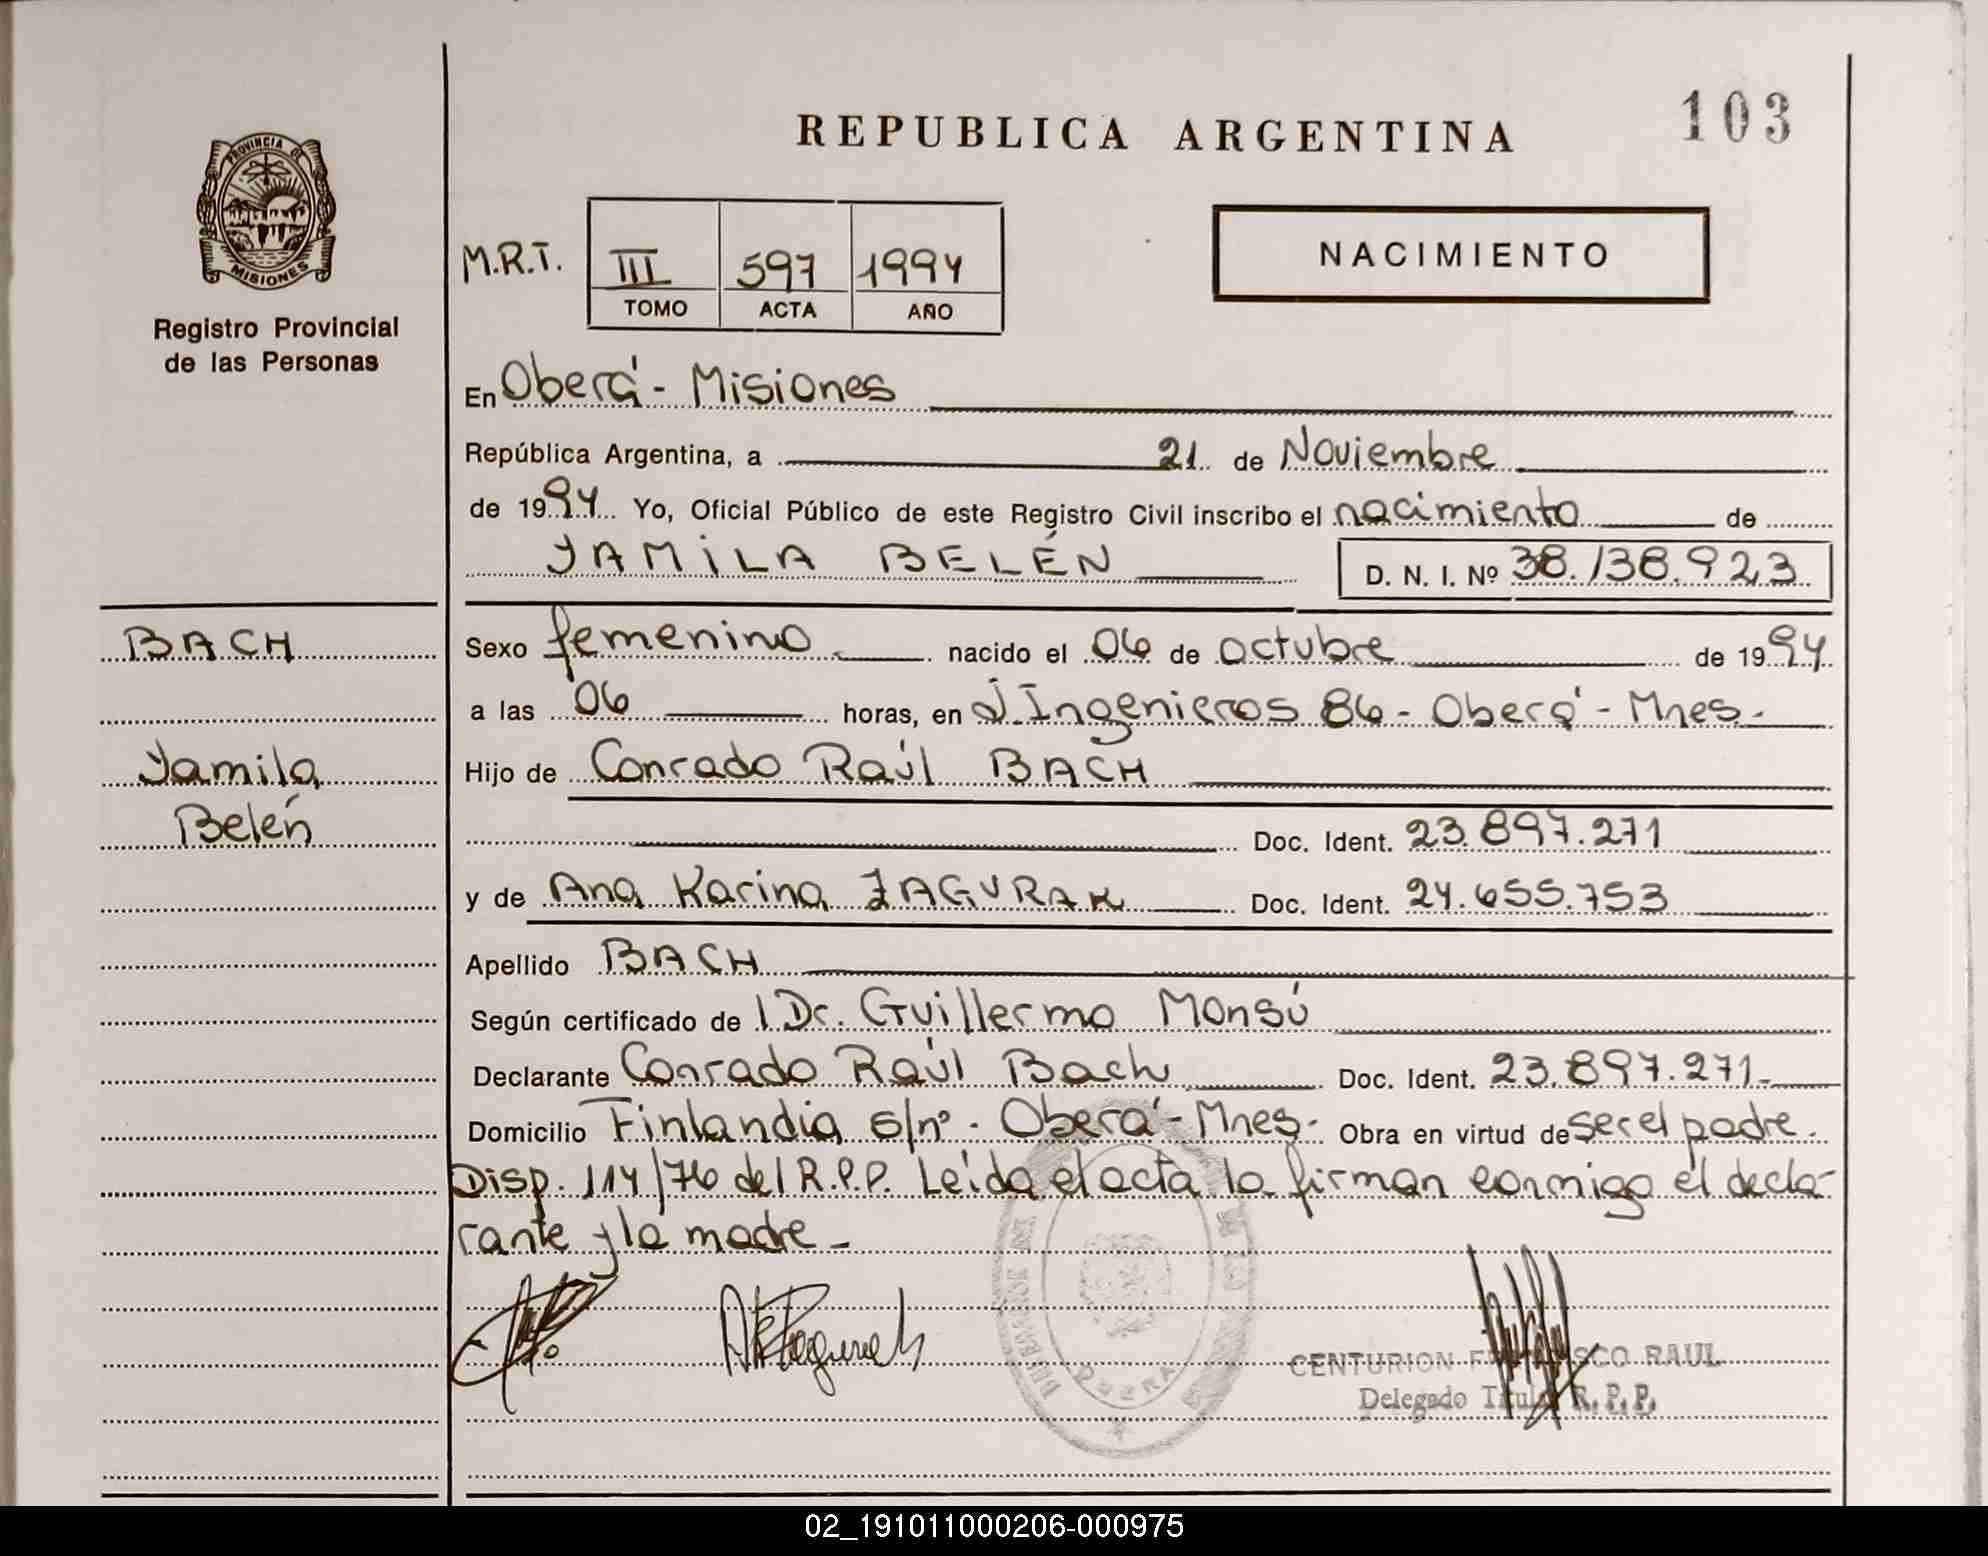 REPUBLICA ARGENTINA
103
PROVINCIA DE
MISIONES
Registro Provincial
de las Personas
M.R.T.
III 597 1994
TOMO ACTA AÑO
NACIMIENTO
En Oberá - Misiones
República Argentina, a 21 de Noviembre
de 1994 Yo, Oficial Público de este Registro Civil inscribo el nacimiento de
YAMILA BELÉN D. N. I. Nº 38.138.923
BACH
Yamila
Belén
Sexo femenino nacido el 06 de octubre de 1994
a las 06 horas, en J. Ingenieros 86 - Oberá - Mnes.
Hijo de Conrado Raúl BACH
Doc. Ident. 23.897.271
y de Ana Karina ZAGURAK Doc. Ident. 24.655.753
Apellido BACH
Según certificado de l Dr. Guillermo Monsú
Declarante Conrado Raúl Bach Doc. Ident. 23.897.271-
Domicilio Finlandia s/nº - Oberá - Mnes. Obra en virtud de ser el padre.
Disp. 114/76 del R.P.P. Leída el acta la firman conmigo el decla-
rante y la madre -
OBERA
CENTURION FRANCISCO RAUL
Delegado Titular R. P. P.
02_191011000206-000975